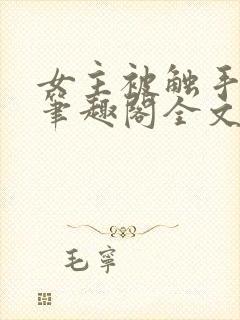 女主被触手
笔趣阁全文
毛寧